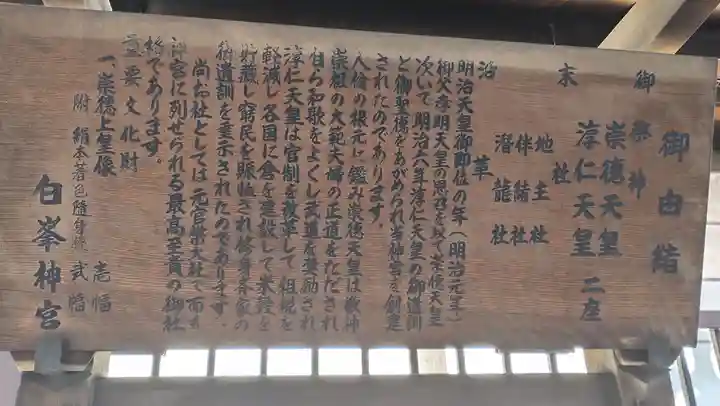 御由緒
御祭神
崇德天皇
淳仁天皇 二座
末社
地主社
伴緒社
潛龍社
沿革
明治天皇御即位の年（明治元年）
御父孝明天皇の思召を以て崇德天皇
次いで明治六年淳仁天皇の御遺訓
と御聖德をあがめられ当神宮を創建
されたのであります。
人倫の根元に鑑み崇德天皇は敬神
崇祖の大範夫婦の正道をたださ れ
自ら和歌をよくし武道を奨励され
淳仁天皇は官制を改革して租税を
軽減し各国に倉を建設して米穀を
貯蔵し窮民を賑恤され修身斉家の
御遺訓を垂示されたのであります。
尚お社としては元官幣大社で而も
神宮に列せられる最高至貴の御社
格であります。
重要文化財
一、崇德上皇像 壱幅
附 絹本著色隨身像 弐幅
白峯神宮